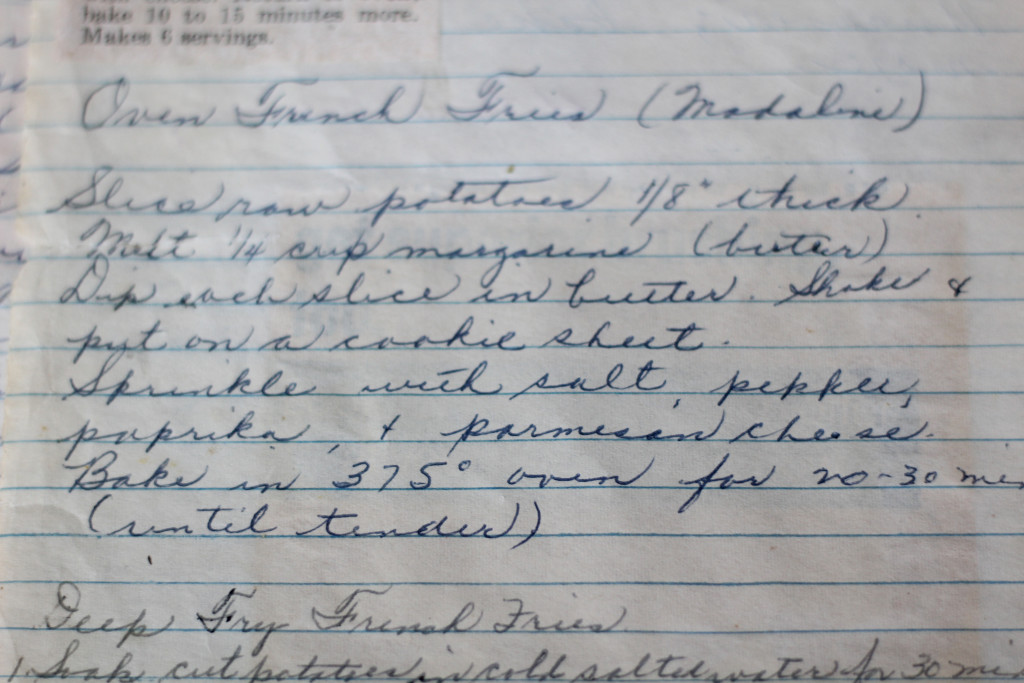 bake 10 to 15 minutes more.
Makes 6 servings.
Oven French Fries (Madaline)
Slice raw potatoes 1/8" thick.
Melt 1/4 cup margarine (butter)
Dip each slice in butter. Shake &
put on a cookie sheet.
Sprinkle with salt, pepper,
paprika, & parmesan cheese.
Bake in 375° oven for 20-30 min
(until tender)
Deep Fry French Fries
1. Soak cut potatoes in cold salted water for 30 min